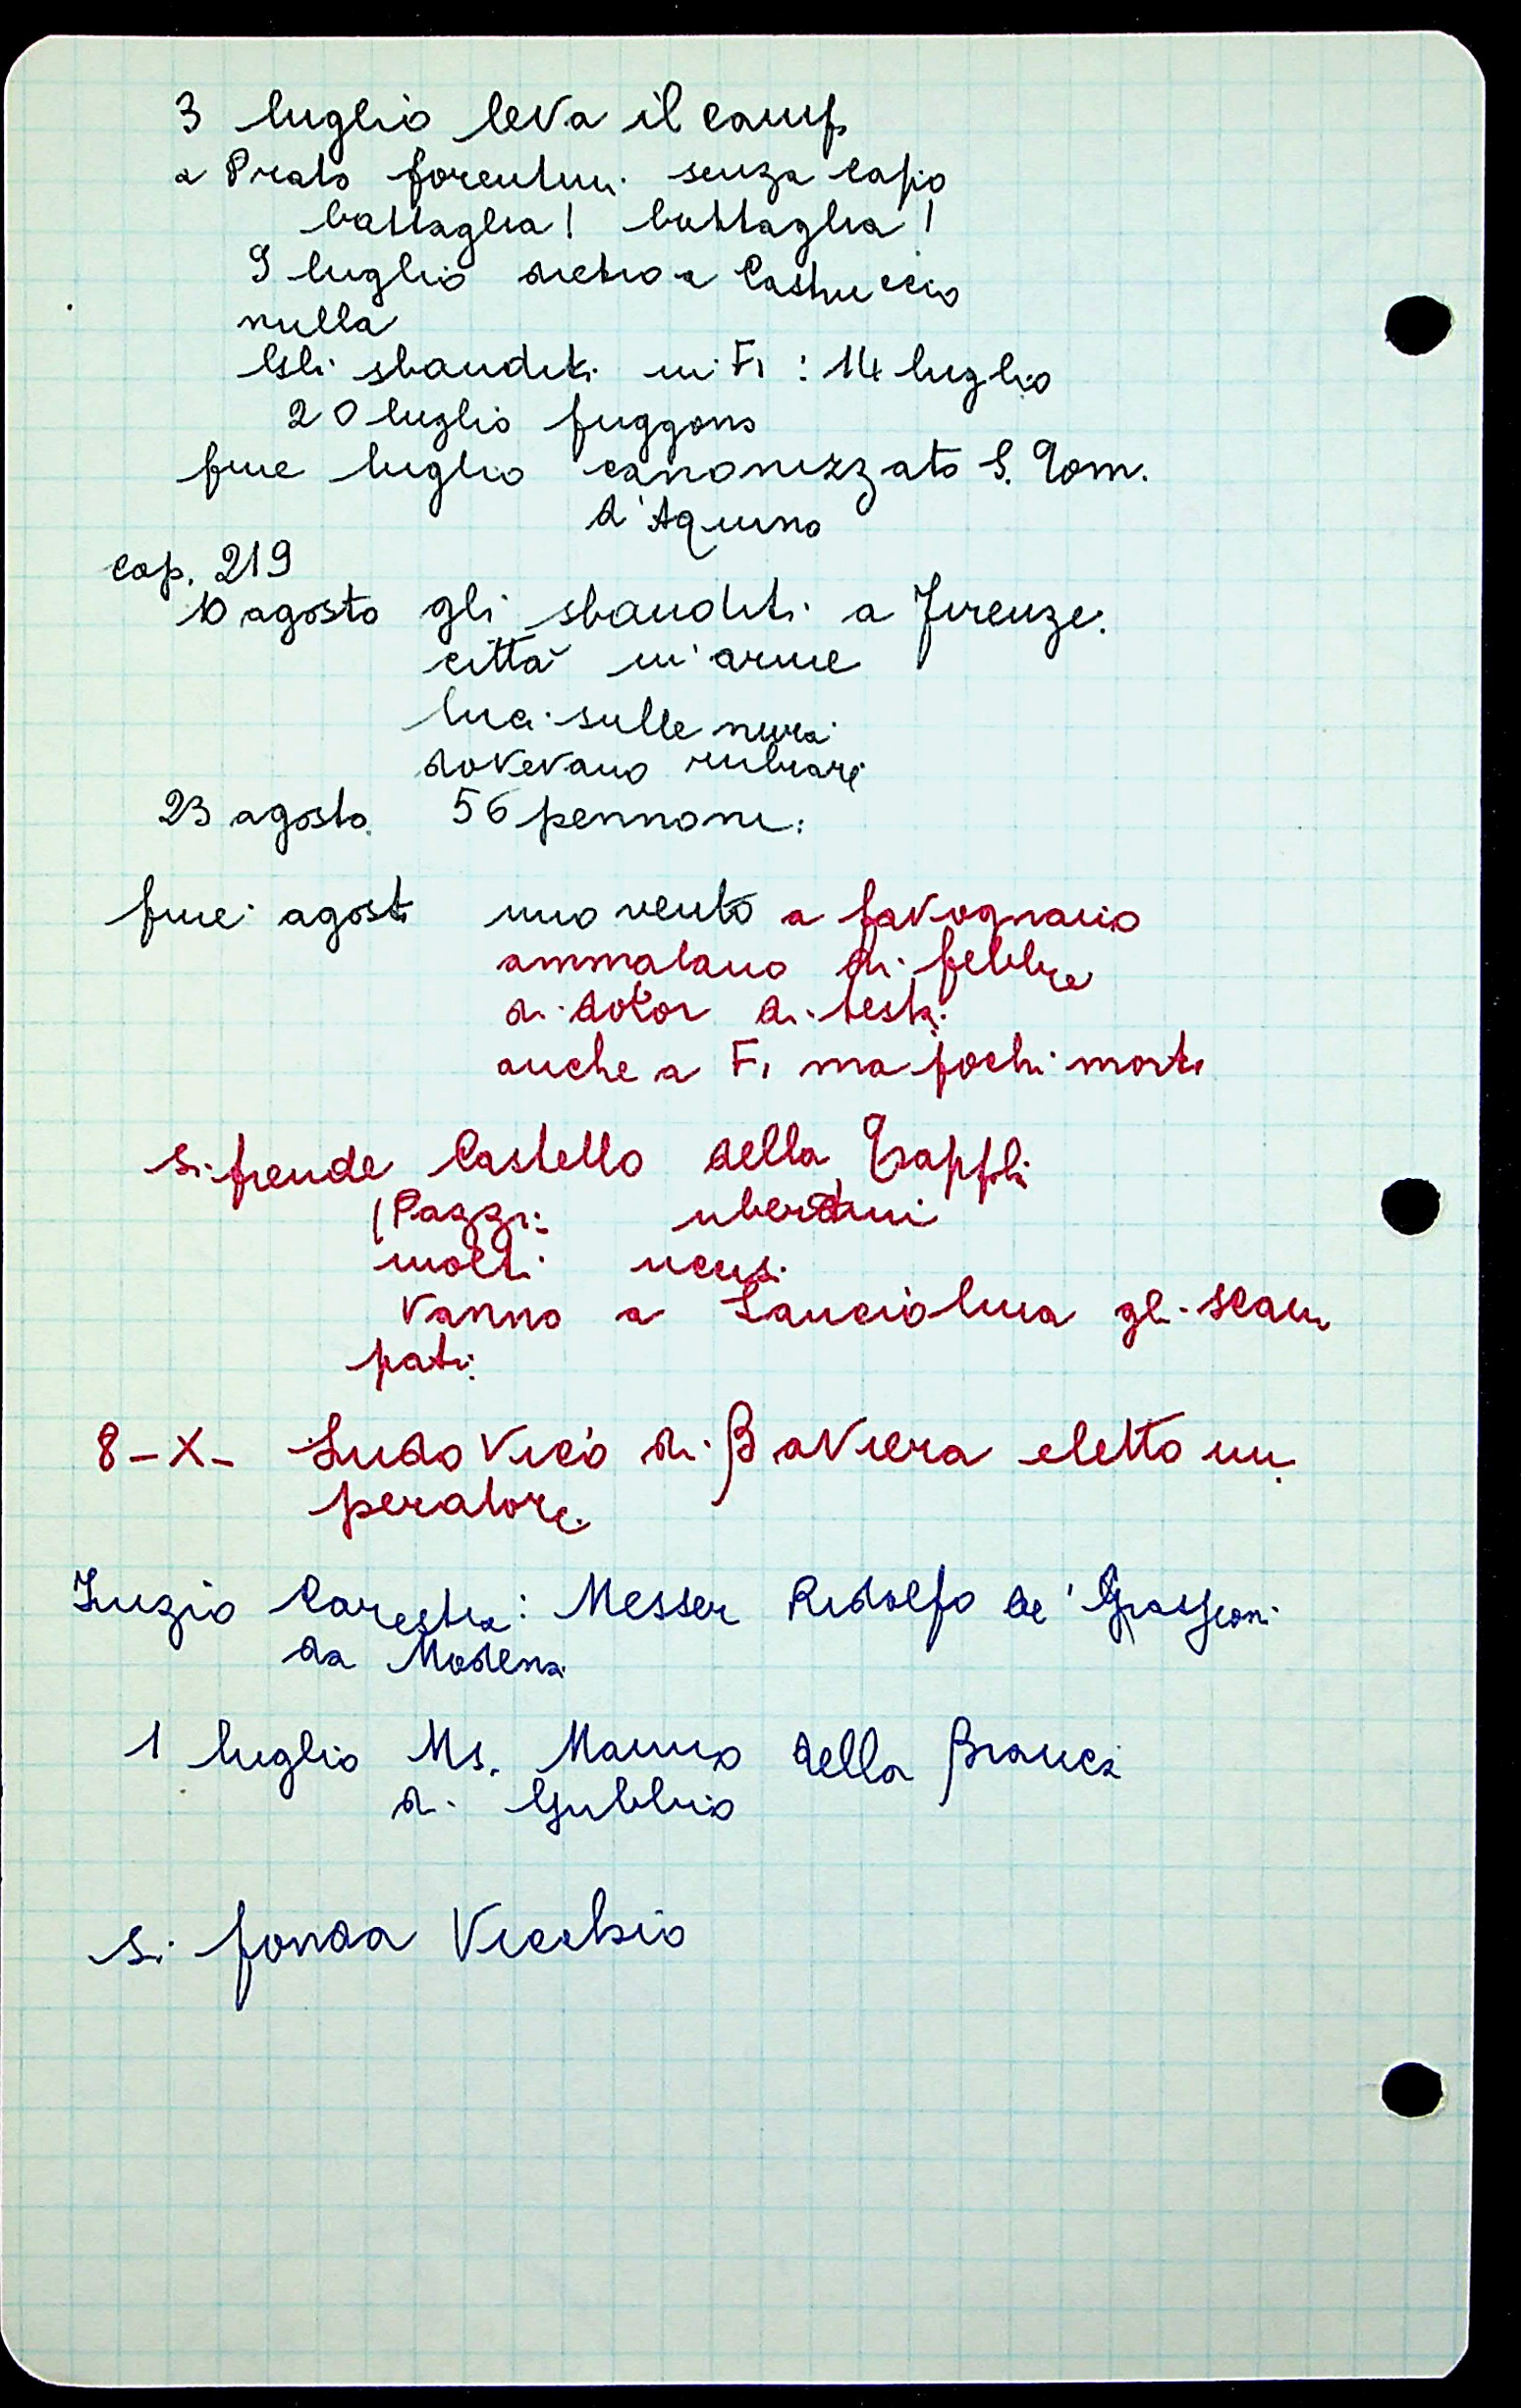 3 luglio leva il campo
a Prato fiorentini senza capo
battaglia! battaglia!
9 luglio dietro a Castruccio
nulla
Gli sbanditi in Fi : 14 luglio
20 luglio fuggono
fine luglio canonizzato S. Tom.
d'Aquino
cap. 219
10 agosto gli sbanditi a Firenze.
città in arme
luci sulle mura
dovevano
23 agosto 56 pennoni.
fine agosto uno vento a favognano
ammalano di febbre
di dolor di testa
anche a Fi ma pochi morti
si prende Castello della Trappola
(Pazzi: ubertini
molti uccisi
vanno a Lanciolina gli scam
pati.
8-X- Ludovico di Baviera eletto im
peratore.
Inizio Carestia: Messer Ridolfo de'
da Modena
1 luglio Ms. Manno della Branca
di Gubbio
si fonda Vicchio